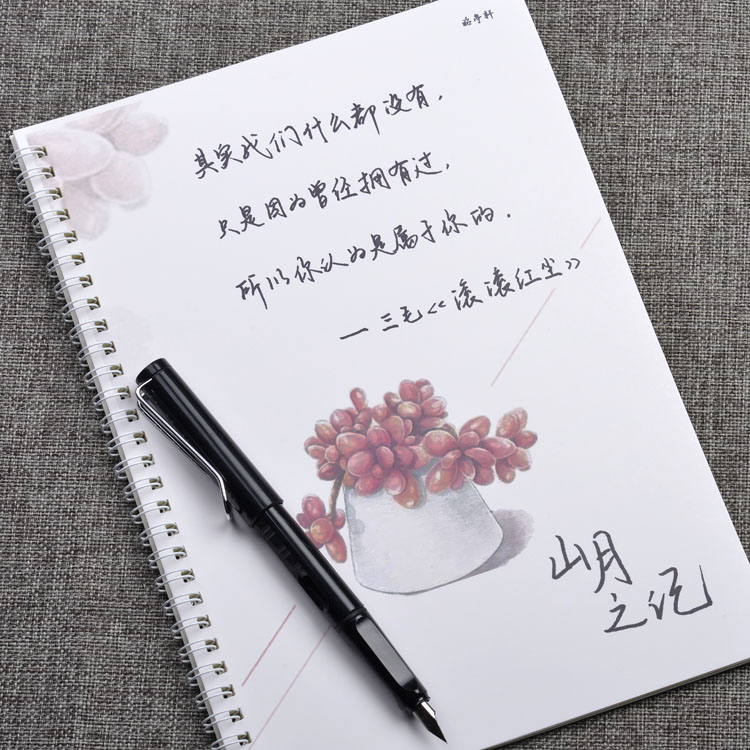 其实我们什么都没有，
只是因为曾经拥有过，
所以你认为是属于你的．
一三毛《滚滚红尘》
山月
之记